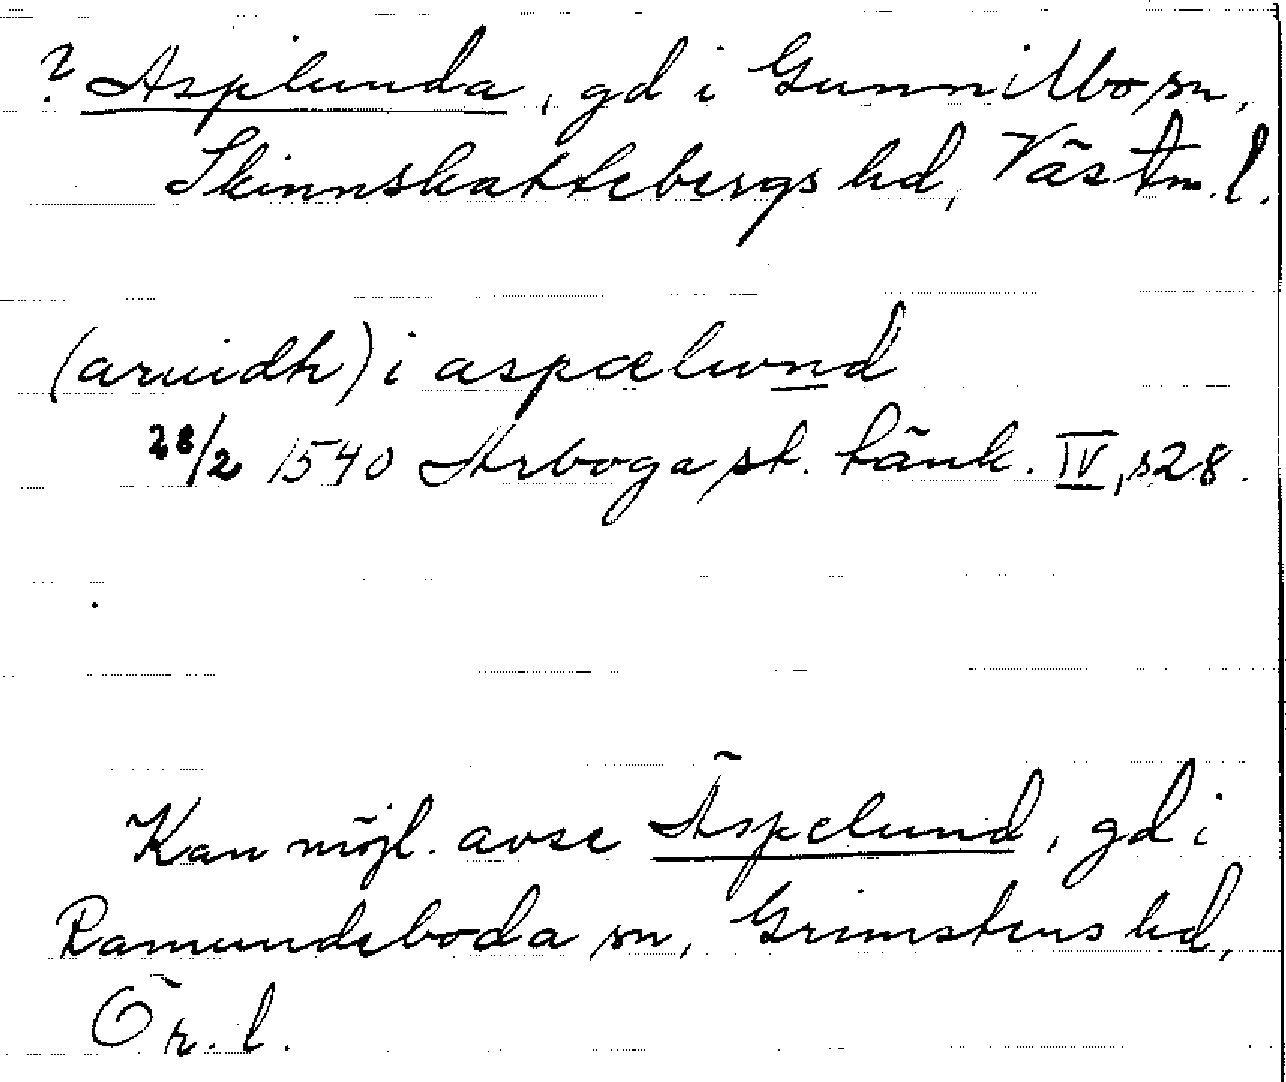 ? Asplunda, gd i Gunnilbo sn,
Skinnskattebergs hd, Västm. l.
(aruidh) i aspœlwnd
28/2 1540 Arboga st. tänk. IV, s 28.
Kan möjl. avse Äspelund, gd i
Ramundeboda sn, Grimstens hd,
Ör. l.